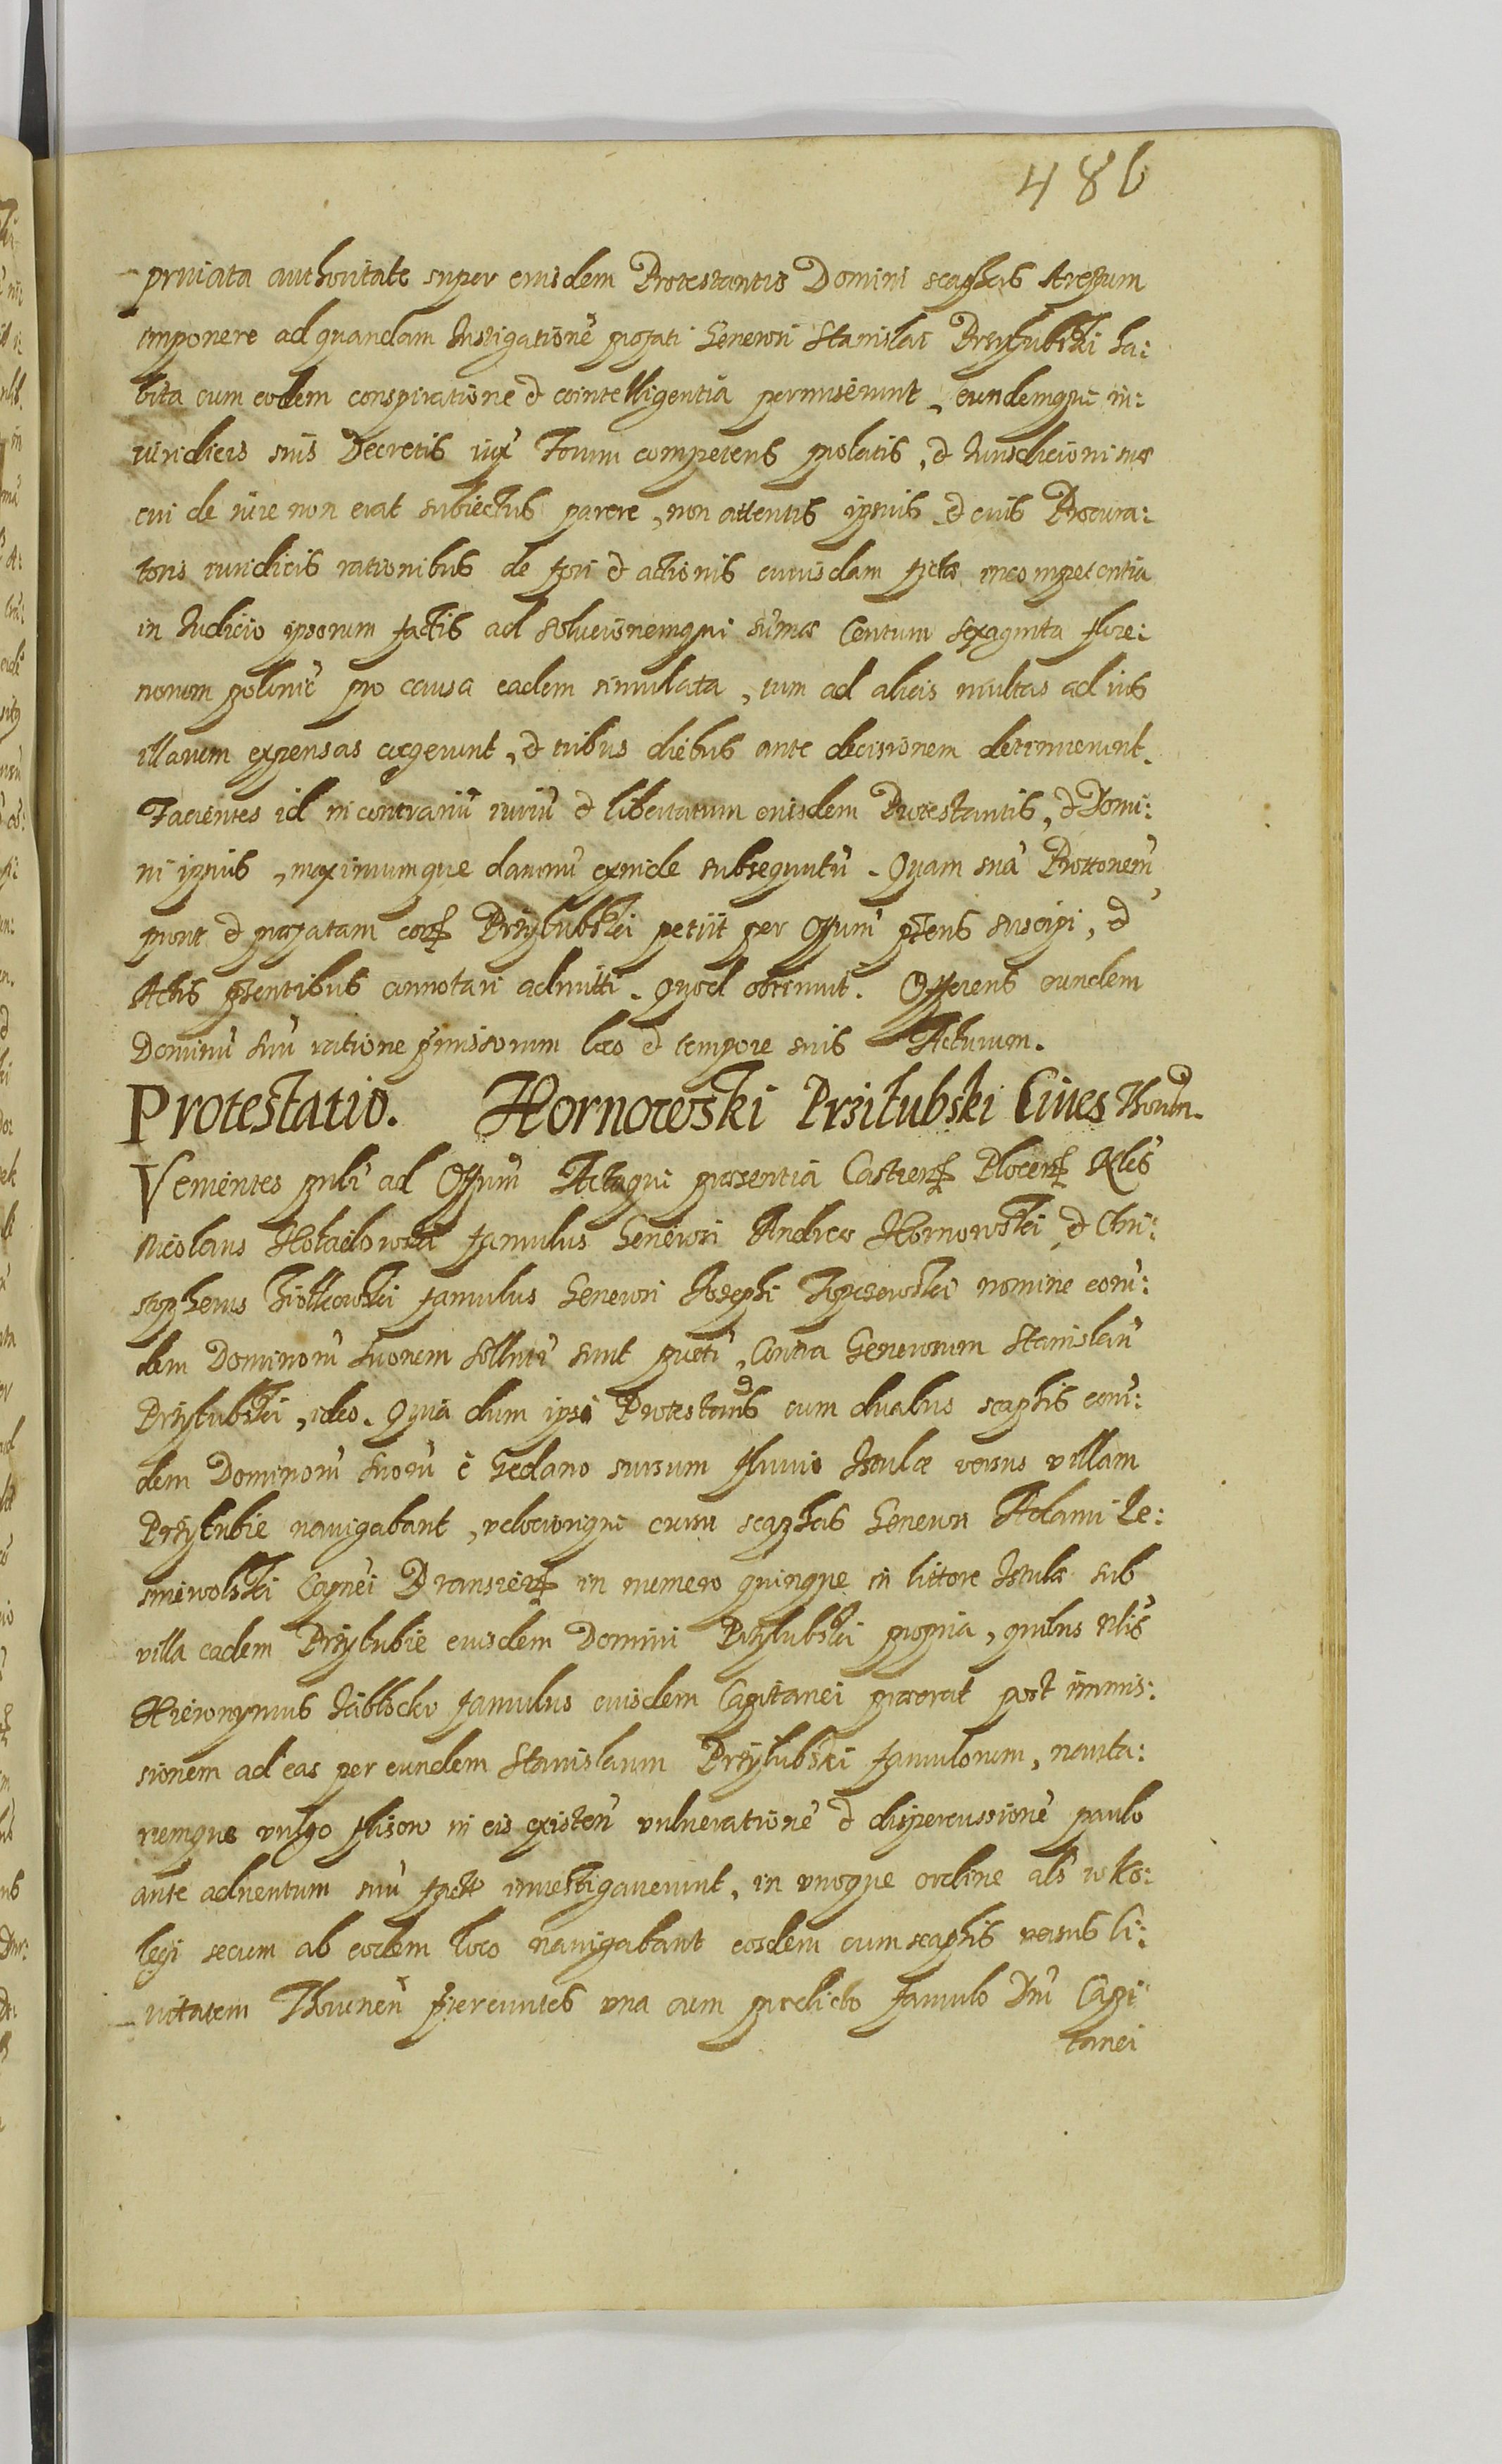 486
priuata authoritate super eiusdem Protestantis Domini scaphas Arestum
imponere ad quandam Instigationē prefati Generosi Stanislai Przyłubski ha:
bita cum eodem conspiratione et cointelligentia permiserunt, eundemque in:
iuridicis suis Decretis iux Forum competens prolatis, et Iurisdicioni suæ
cui de iure non erat subiectus parere, non attentis ipsius et eius Procura:
toris iuridicis rationibus de fori et actionis cuiusdam fictæ incompetentia
in Iudicio ipsorum factis ad solucionemque sūmæ Centum sexaginta flore:
norum polonic pro causa eadem simulata, tum ad alias multas ad ius
illarum expensas coegerunt, et tribus diebus ante decisionem detinuerunt.
Facientes id in contrariū iuriū et libertatum eiusdem Protestantis, et Domi:
ni ipsius, maximumque damnū exinde subsequutū. Quam suā Prottonem
prout et præfatam Przyłubski petiit per Offum pñtens suscipi, et
Actis pñtentibus annotari admitti. Quod obtinuit. Offerens eundem
Dominū suū ratione pñmissorum loco et tempore suis Acturum.
Protestatio. Hornowski Prziłubski Ciues Thorun.
Venientes pnlr ad Offum Actaque præsentia Castren Plocen Nles
Nicolaus famulus Generosi Andreæ Hornowski, et Chri:
stopherus Ziołkowski famulus Generosi Josephi nomine eorū:
dem Dominorū suorum sollnr sunt questi, Contra Generosum Stanislaū
Przyłubski, ideo. Quia dum ipsi Protestantes cum duabus scaphis eorū:
dem Dominorū suorū è Gedano sursum fluuio Istulæ versus villam
Przyłubie nauigabant, velociorique cursu scaphas Generosi Adami Le:
sniwolski Capnei Bransien in numero quinque in littore Istulæ sub
villa eadem Przyłubie eiusdem Domini Przyłubski propria, quibus Nlis
Hieronymus famulus eiusdem Capitanei præerat post immis:
sionem ad eas per eundem Stanislaum Przyłubski famulorum, nauta:
rumque vulgo flisow in eis existen vulnerationē et dispercussionē paulo
ante aduentum suū fact inuestigauerunt, in vnoque ordine als w ko:
legi secum ab eodem loco nauigabant eosdem cum scaphis versus Ci:
uitatem Thorunen una cum prædicto famulo Dni Capi
tanei